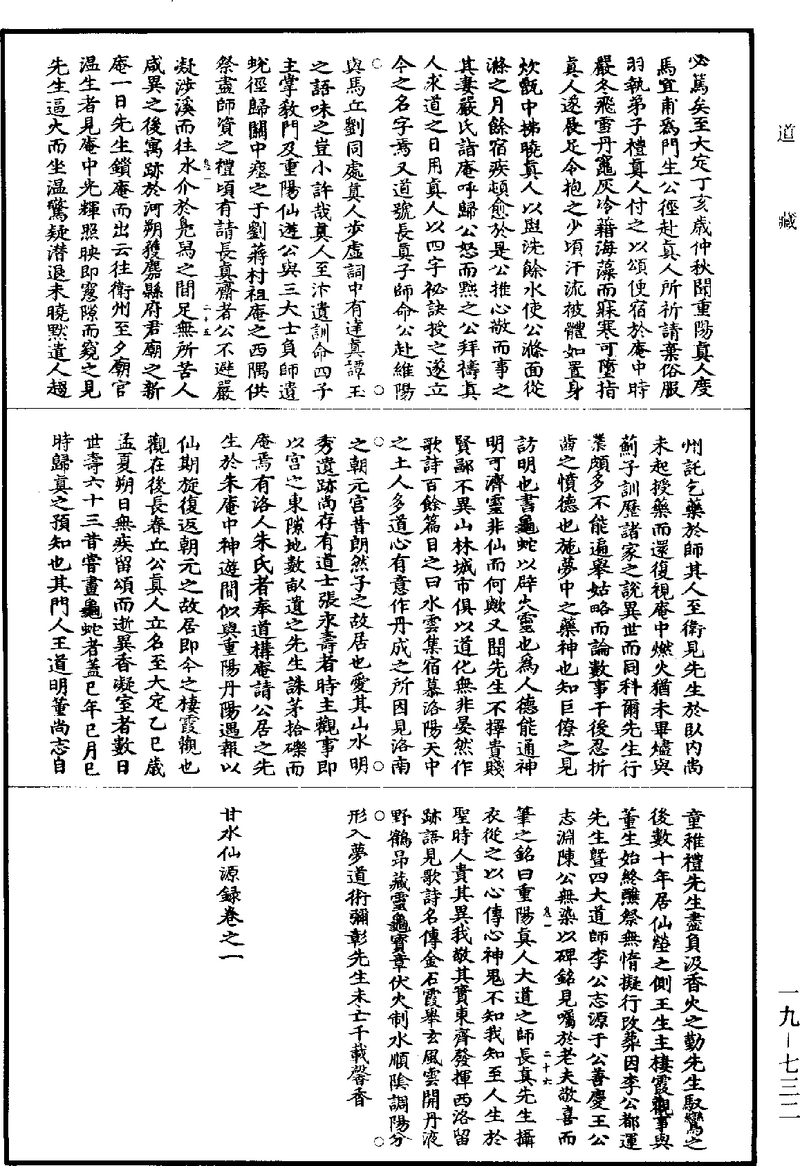 道藏
必篤矣至大定丁亥歲仲秋聞重陽真人度
馬宜甫爲門生公徑赴真人所祈請棄俗服
羽執弟子禮真人付之以頌使宿於庵中時
嚴冬飛雪丹竈灰冷藉海藻而寐寒可墮指
真人遂展足令抱之少頃汗流被體如置身
炊甑中拂曉真人以盥洗餘水使公滌面從
滌之月餘宿疾頓愈於是公推心敬而事之
其妻嚴氏詣庵呼歸公怒而黜之公拜禱真
人求道之日用真人以四字祕訣授之遂立
今之名字焉又道號長真子師命公赴維陽
與馬丘劉同處真人步虛詞中有達真譚玉
之語味之豈小許哉真人至汴遺訓命四子
主掌敎門及重陽仙遊公與三大士負師遺
蛻徑歸關中瘞之于劉蔣村祖庵之西隅供
祭盡師資之禮頃有請長真齋者公不避嚴
凝涉溪而往水介於鳧舄之間足無所苦人
咸異之後寓跡於河朔獲鹿縣府君廟之新
庵一日先生鎖庵而出云往衛州至夕廟官
温生者見庵中光輝照映即窻隙而窺之見
先生逼火而坐温驚疑潜退未曉默遣人趨
州託乞藥於師其人至衛見先生於臥內尚
未起授藥而還復視庵中燃火猶未畢燼與
薊子訓歷諸家之說異世而同科爾先生行
業頗多不能遍舉姑略而論數事于後忍折
齒之憤德也施夢中之藥神也知巨僚之見
訪明也書龜蛇以辟火靈也爲人德能通神
明可濟靈非仙而何歟又聞先生不擇貴賤
賢鄙不異山林城市俱以道化無非晏然作
歌詩百餘篇目之曰水雲集宿慕洛陽天中
之土人多道心有意作丹成之所因見洛南
之朝元宮昔朗然子之故居也愛其山水明
秀遺跡尚存有道士張永壽者時主觀事即
以宮之東隙地數畝遺之先生誅茅拾礫而
庵焉有洛人朱氏者奉道構庵請公居之先
生於朱庵中神遊間似與重陽丹陽遇報以
仙期旋復返朝元之故居即今之棲霞觀也
觀在後長春丘公真人立名至大定乙巳歲
孟夏朔日無疾留頌而逝異香凝室者數日
世壽六十三昔嘗畫龜蛇者蓋巳年巳月巳
時歸真之預知也其門人王道明董尚志自
童稚禮先生盡負汲香火之勤先生馭鸞之
後數十年居仙塋之側王生主棲霞觀事與
董生始終醮祭無惰擬行改葬因李公都運
先生曁四大道師李公志源于公善慶王公
志淵陳公無染以碑銘見囑於老夫敬喜而
筆之銘曰重陽真人大道之師長真先生攝
衣從之以心傳心神鬼不知我知至人生於
聖時人貴其異我敬其實東齊發揮西洛留
跡語見歌詩名傳金石霞舉玄風雲開丹液
野鶴昂藏靈龜寳章伏火制水順陰調陽分
形入夢道術彌彰先生未亡千載馨香
甘水仙源録卷之一
一九－七三二